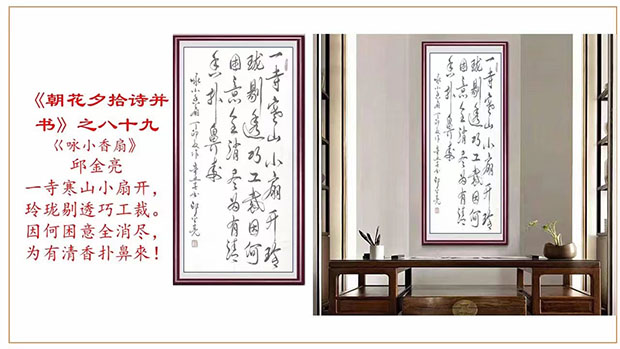 《朝花夕拾诗并
书》之八十九
《咏小香扇》
邱金亮
一寺寒山小扇开，
玲珑剔透巧工裁。
因何困意全消尽，
为有清香扑鼻來！
一寺寒山小扇开玲
珑剔透巧工裁因何
困意全消尽为有清
香扑鼻來
咏小香扇 邱金亮
一寺寒山小扇开玲
珑剔透巧工裁因何
困意全消尽为有清
香扑鼻來
咏小香扇 邱金亮